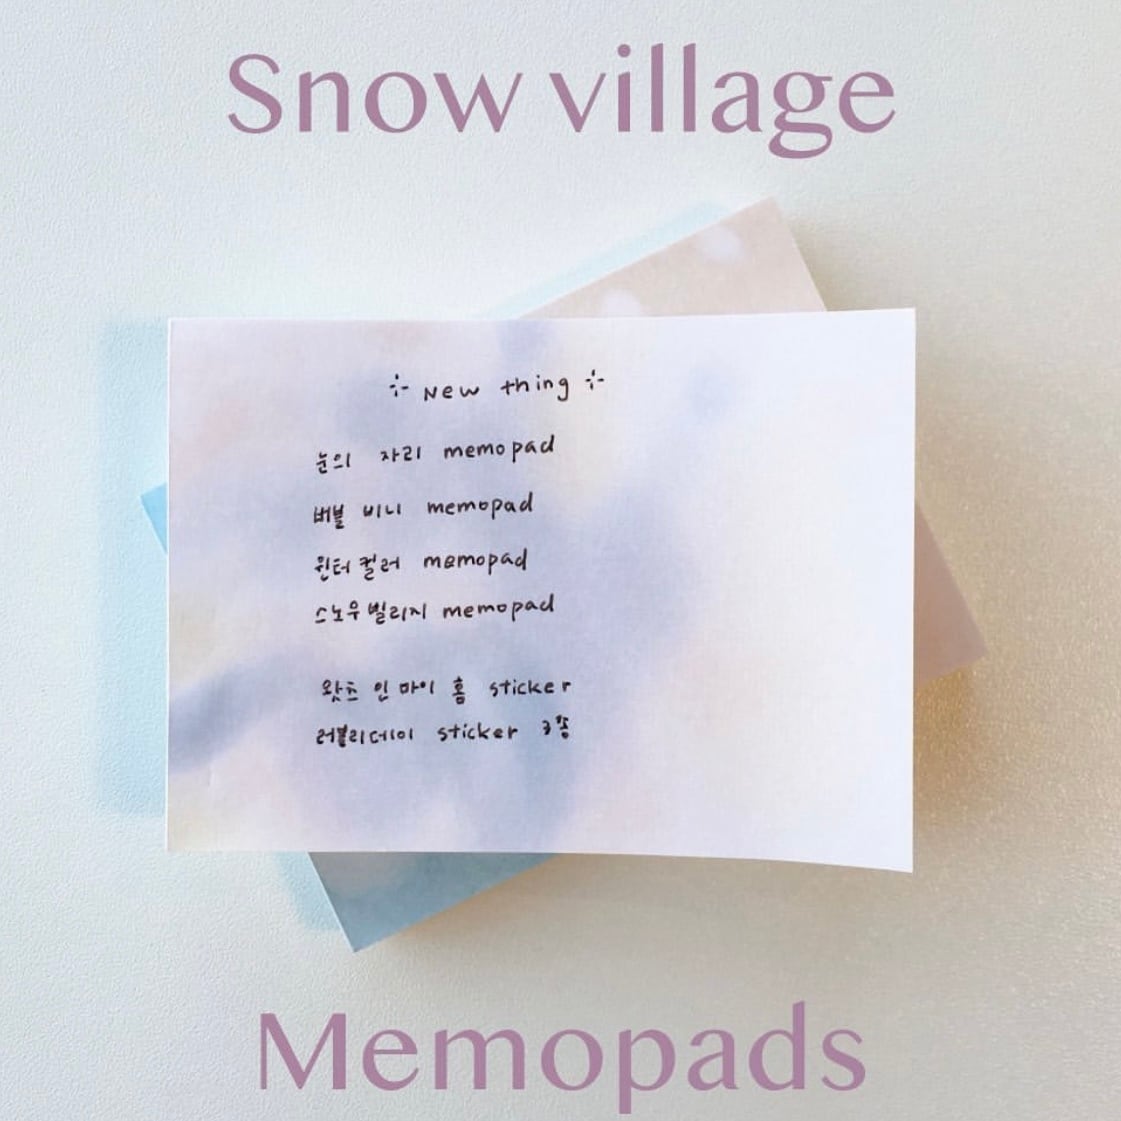 Snow village
⊹ New thing ⊹
눈의 자리 memopad
버블 비니 memopad
윈터 컬러 memopad
스노우 빌리지 memopad
왓츠 인 마이 홈 sticker
러블리데이 sticker 3종
Memopads